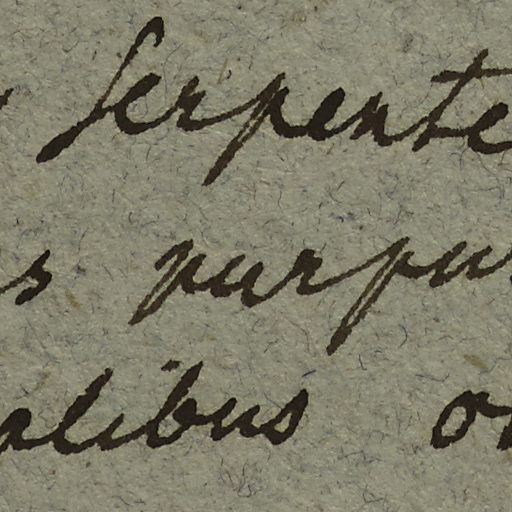 Serpente
s purpu
alibus o